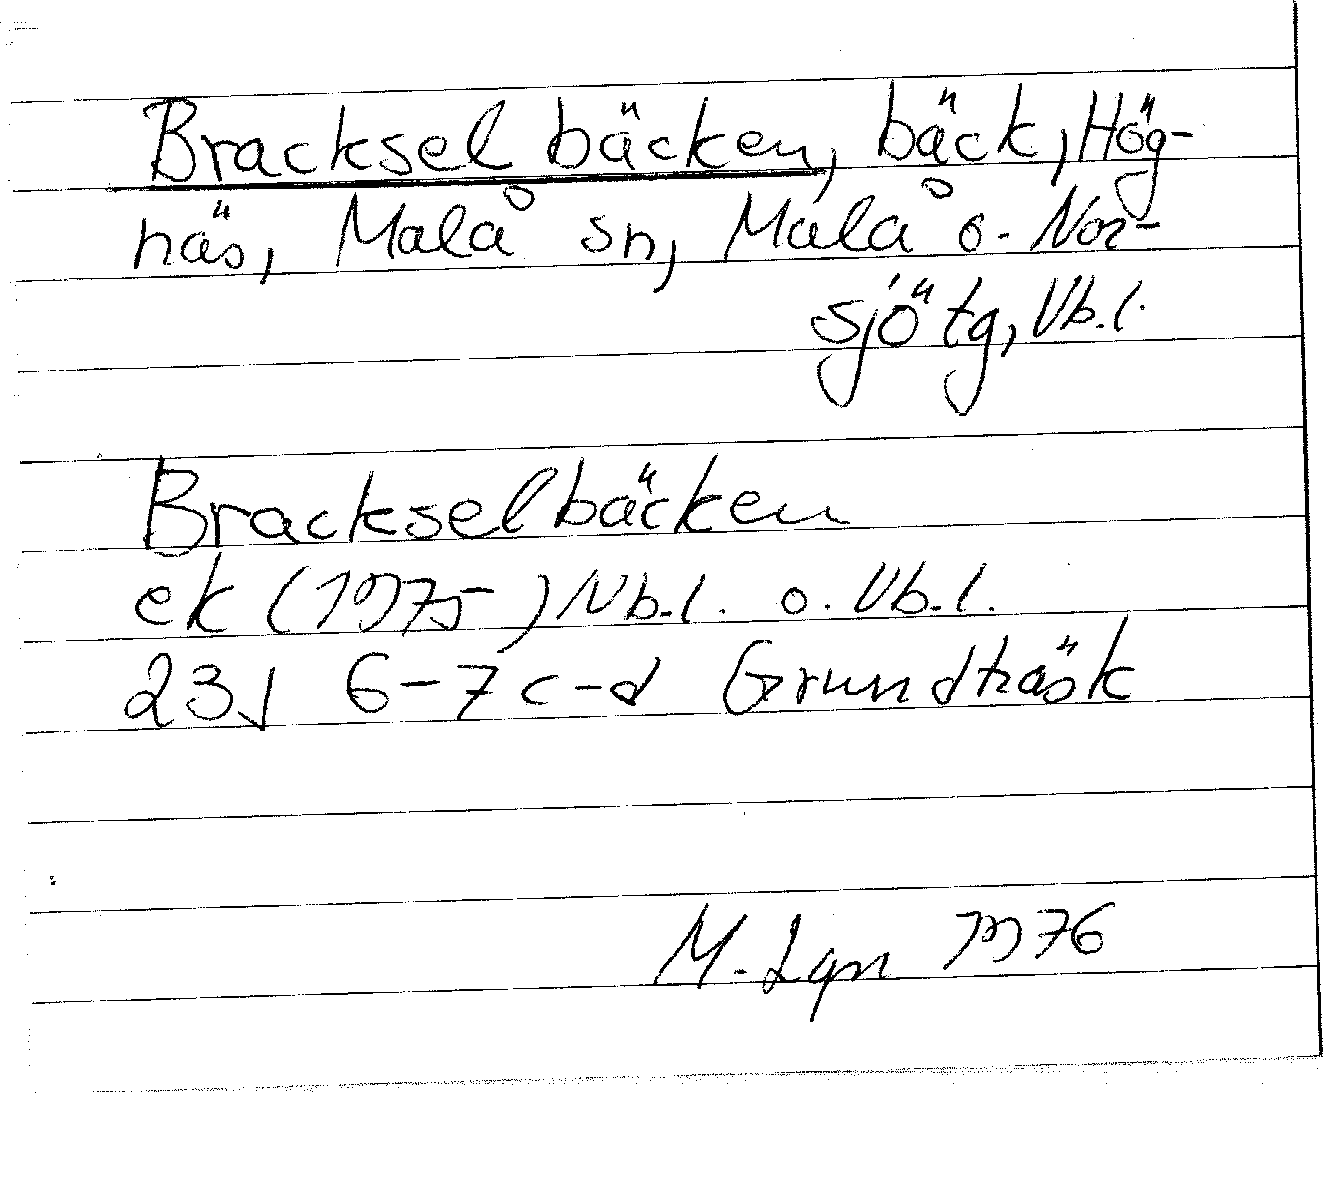 Brackselbäcken, bäck, Hög-
näs, Malå sn, Malå o. Nor-
sjö tg, Vb.l.
Brackselbäcken
ek (1975) Nb.l. o. Vb.l.
23J 6-7 c-d Grundträsk
M. Lgn 1976